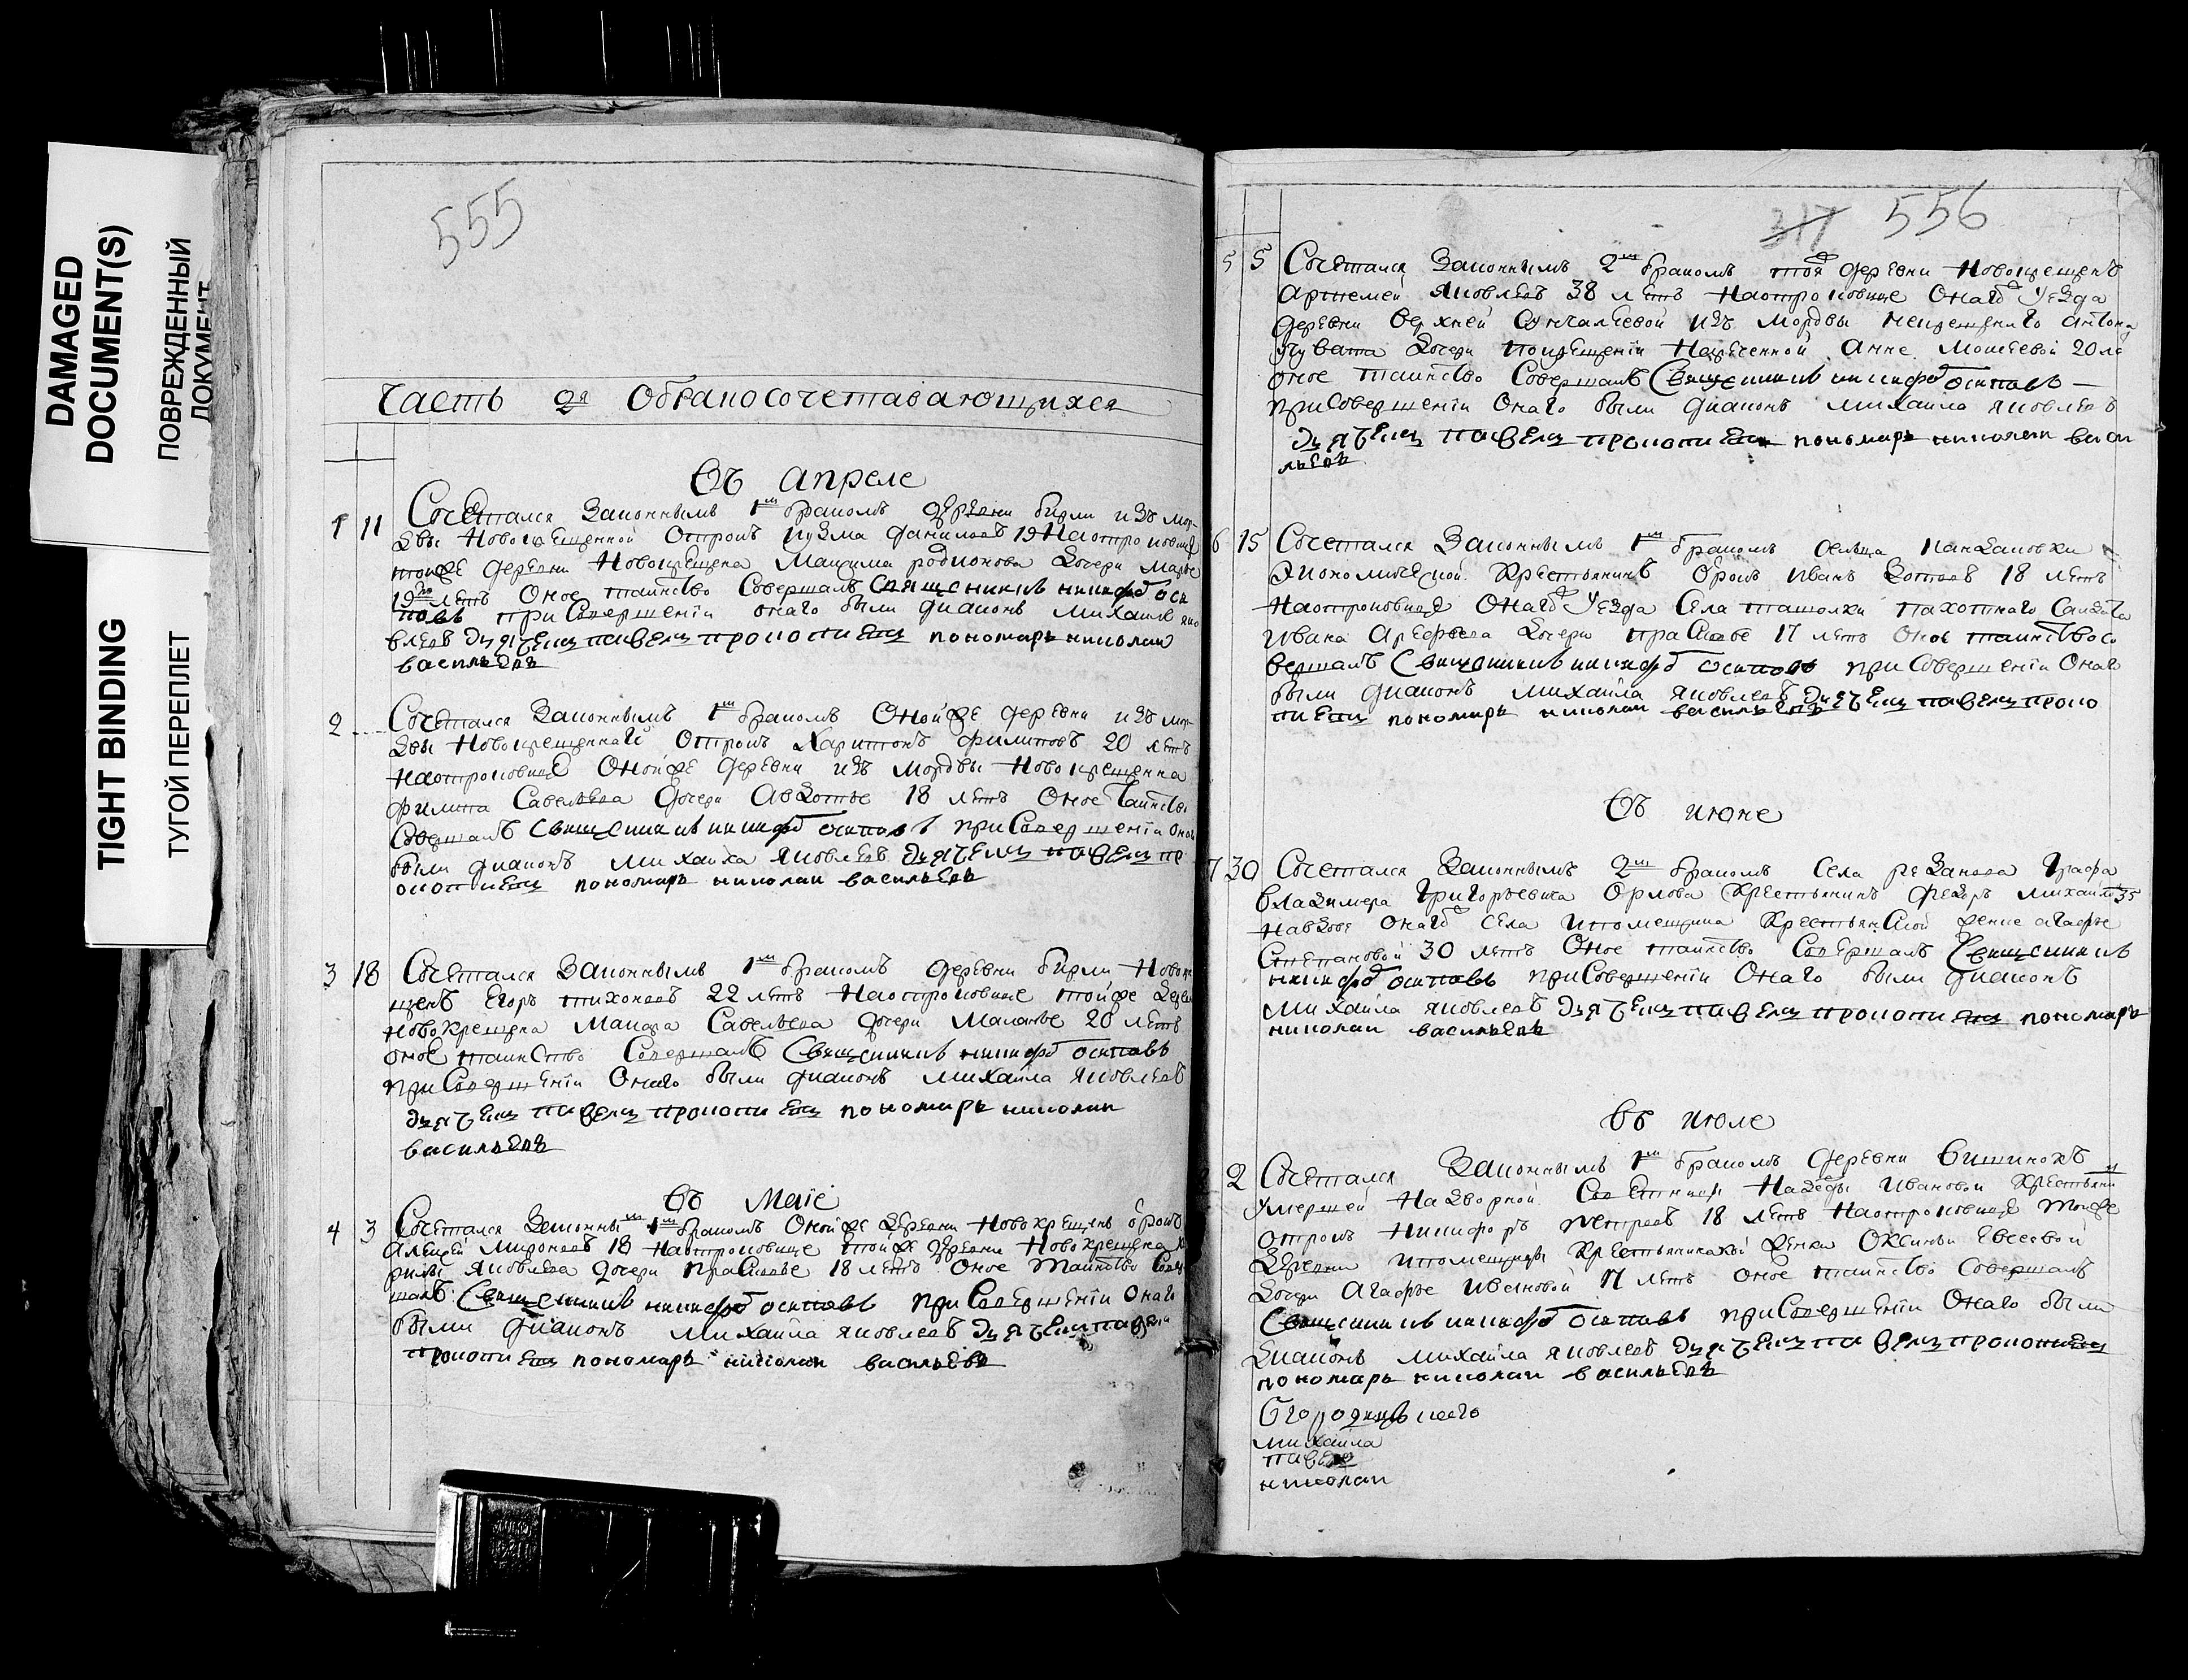 DAMAGED
DOCUMENT(S)
ПОВРЕЖДЕННЫЙ
ДОКУМЕНТ
TIGHT BINDING
ТУГОЙ ПЕРЕПЛЕТ
555
Часть 2я Обракосочетавающихся
Въ апреле
1 11 Сочетался Законнымъ 1м бракомъ деревни бирли изъ мор
двы Новокрещенной Отрокъ кузма данилоевъ 19 Наотроковице
тойже деревни Новокрещена Максима родионова Дочери Марье
19ть летъ Оное таинство Совершалъ Священникъ никифоръ оси
повъ при Совершеніи онаго были диаконъ Михаила яко
влевъ дьячекъ павелъ прокопиевъ пономарь николаи
васильевъ
2 Сочетался Законнымъ 1м бракомъ Онойже деревни изъ мор
двы Новокрещеннаго Отрокъ Харитонъ филиповъ 20 летъ
наотроковице Онойже деревни изъ мордвы Новокрещенна
филипа Савельева дочери Авдотье 18 летъ Оное таинство
Совершалъ Священникъ никифоръ осиповъ при Совершеніи Онаго
были диаконъ Михаила Яковлевъ дьячекъ павелъ пр
окопиевъ пономарь николаи васильевъ
3 18 Сочетался Законнымъ 1м бракомъ деревни бирли Новокре
щенъ Егоръ тихоноевъ 22 летъ Наотроковице тойже Дерев
новокрещена Макара Савельева дочери Маланье 20 летъ
оное таинство Совершалъ Священникъ никифоръ осиповъ
при Совершеніи Онаго были диаконъ Михаила Яковлевъ
дьячекъ павелъ прокопиевъ пономарь николаи
васильевъ
Въ Маіе
4 3 Сочетался Законны 1м бракомъ Онойже Деревни Новокрещенъ
Алексей Мироноевъ 18 Наотроковице тойже деревни Новокрещена
Яковлева дочери Прасковье 18 летъ Оное таинство Совер
шалъ Священникъ никифоръ осиповъ при Совершеніи Онаго
были диаконъ Михаила Яковлевъ дьячекъ павелъ
прокопиевъ пономарь николаи васильевъ
317 556
5 5 Сочетался Законнымъ 2м бракомъ тоя деревни Новокрещенъ
Артемей Яковлевъ 38 летъ Наотроковице Онагоже Уезда
деревни Верхней из мордвы некрещенаго антона
Дочери покрещеніи Нареченной Анне Моисеевой 20 ле
оное таинство Совершалъ Священникъ никифоръ осиповъ
при Совершеніи Онаго были диаконъ Михаила Яковлевъ
дьячекъ павелъ прокопиевъ пономарь николаи васи
льевъ
6 15 Сочетался Законнымъ 1м бракомъ сельца Канзаповки
Экономической Крестьянинъ Иванъ Зотоевъ 18 летъ
Наотроковице Онагоже Уезда Села ташолки пахотнаго Солдата
Ивана Арефьева Дочери прасковье 17 летъ Оное таинство со
вершалъ Священникъ никифоръ осиповъ при Совершеніи Онаго
были диаконъ Михаила Яковлевъ дьячекъ павелъ проко
пиевъ пономарь николаи васильевъ
Въ июне
7 30 Сочетался Законнымъ 2м бракомъ Села резанова Графа
Владимера Григорьевича Орлова Крестьянинъ Федоръ Михаилов 35
навдове Онагоже Села ипомещика Крестьянской женке агафье
Степановой 30 летъ Оное таинство Совершалъ Священникъ
никифоръ осиповъ при Совершеніи Онаго были диаконъ
Михаила Яковлевъ дьячекъ павелъ прокопиевъ пономарь
николаи васильевъ
Въ июле
2 Сочетался Законнымъ 1м бракомъ Деревни
Умершей Надворной Советницы Надежды Ивановой Крестьяни
отрокъ Никифоръ петроевъ 18 летъ Наотроковице Тойже
Деревни ипомещицы Крестьянской женки Оксиньи Евсеевой
Дочери Агафье Ивановой 17 летъ оное таинство Совершалъ
Священникъ никифоръ осиповъ при Совершеніи Онаго были
Диаконъ Михаила Яковлевъ дьячекъ павелъ прокопиевъ
пономарь николаи васильевъ
михаила
павелъ
николаи